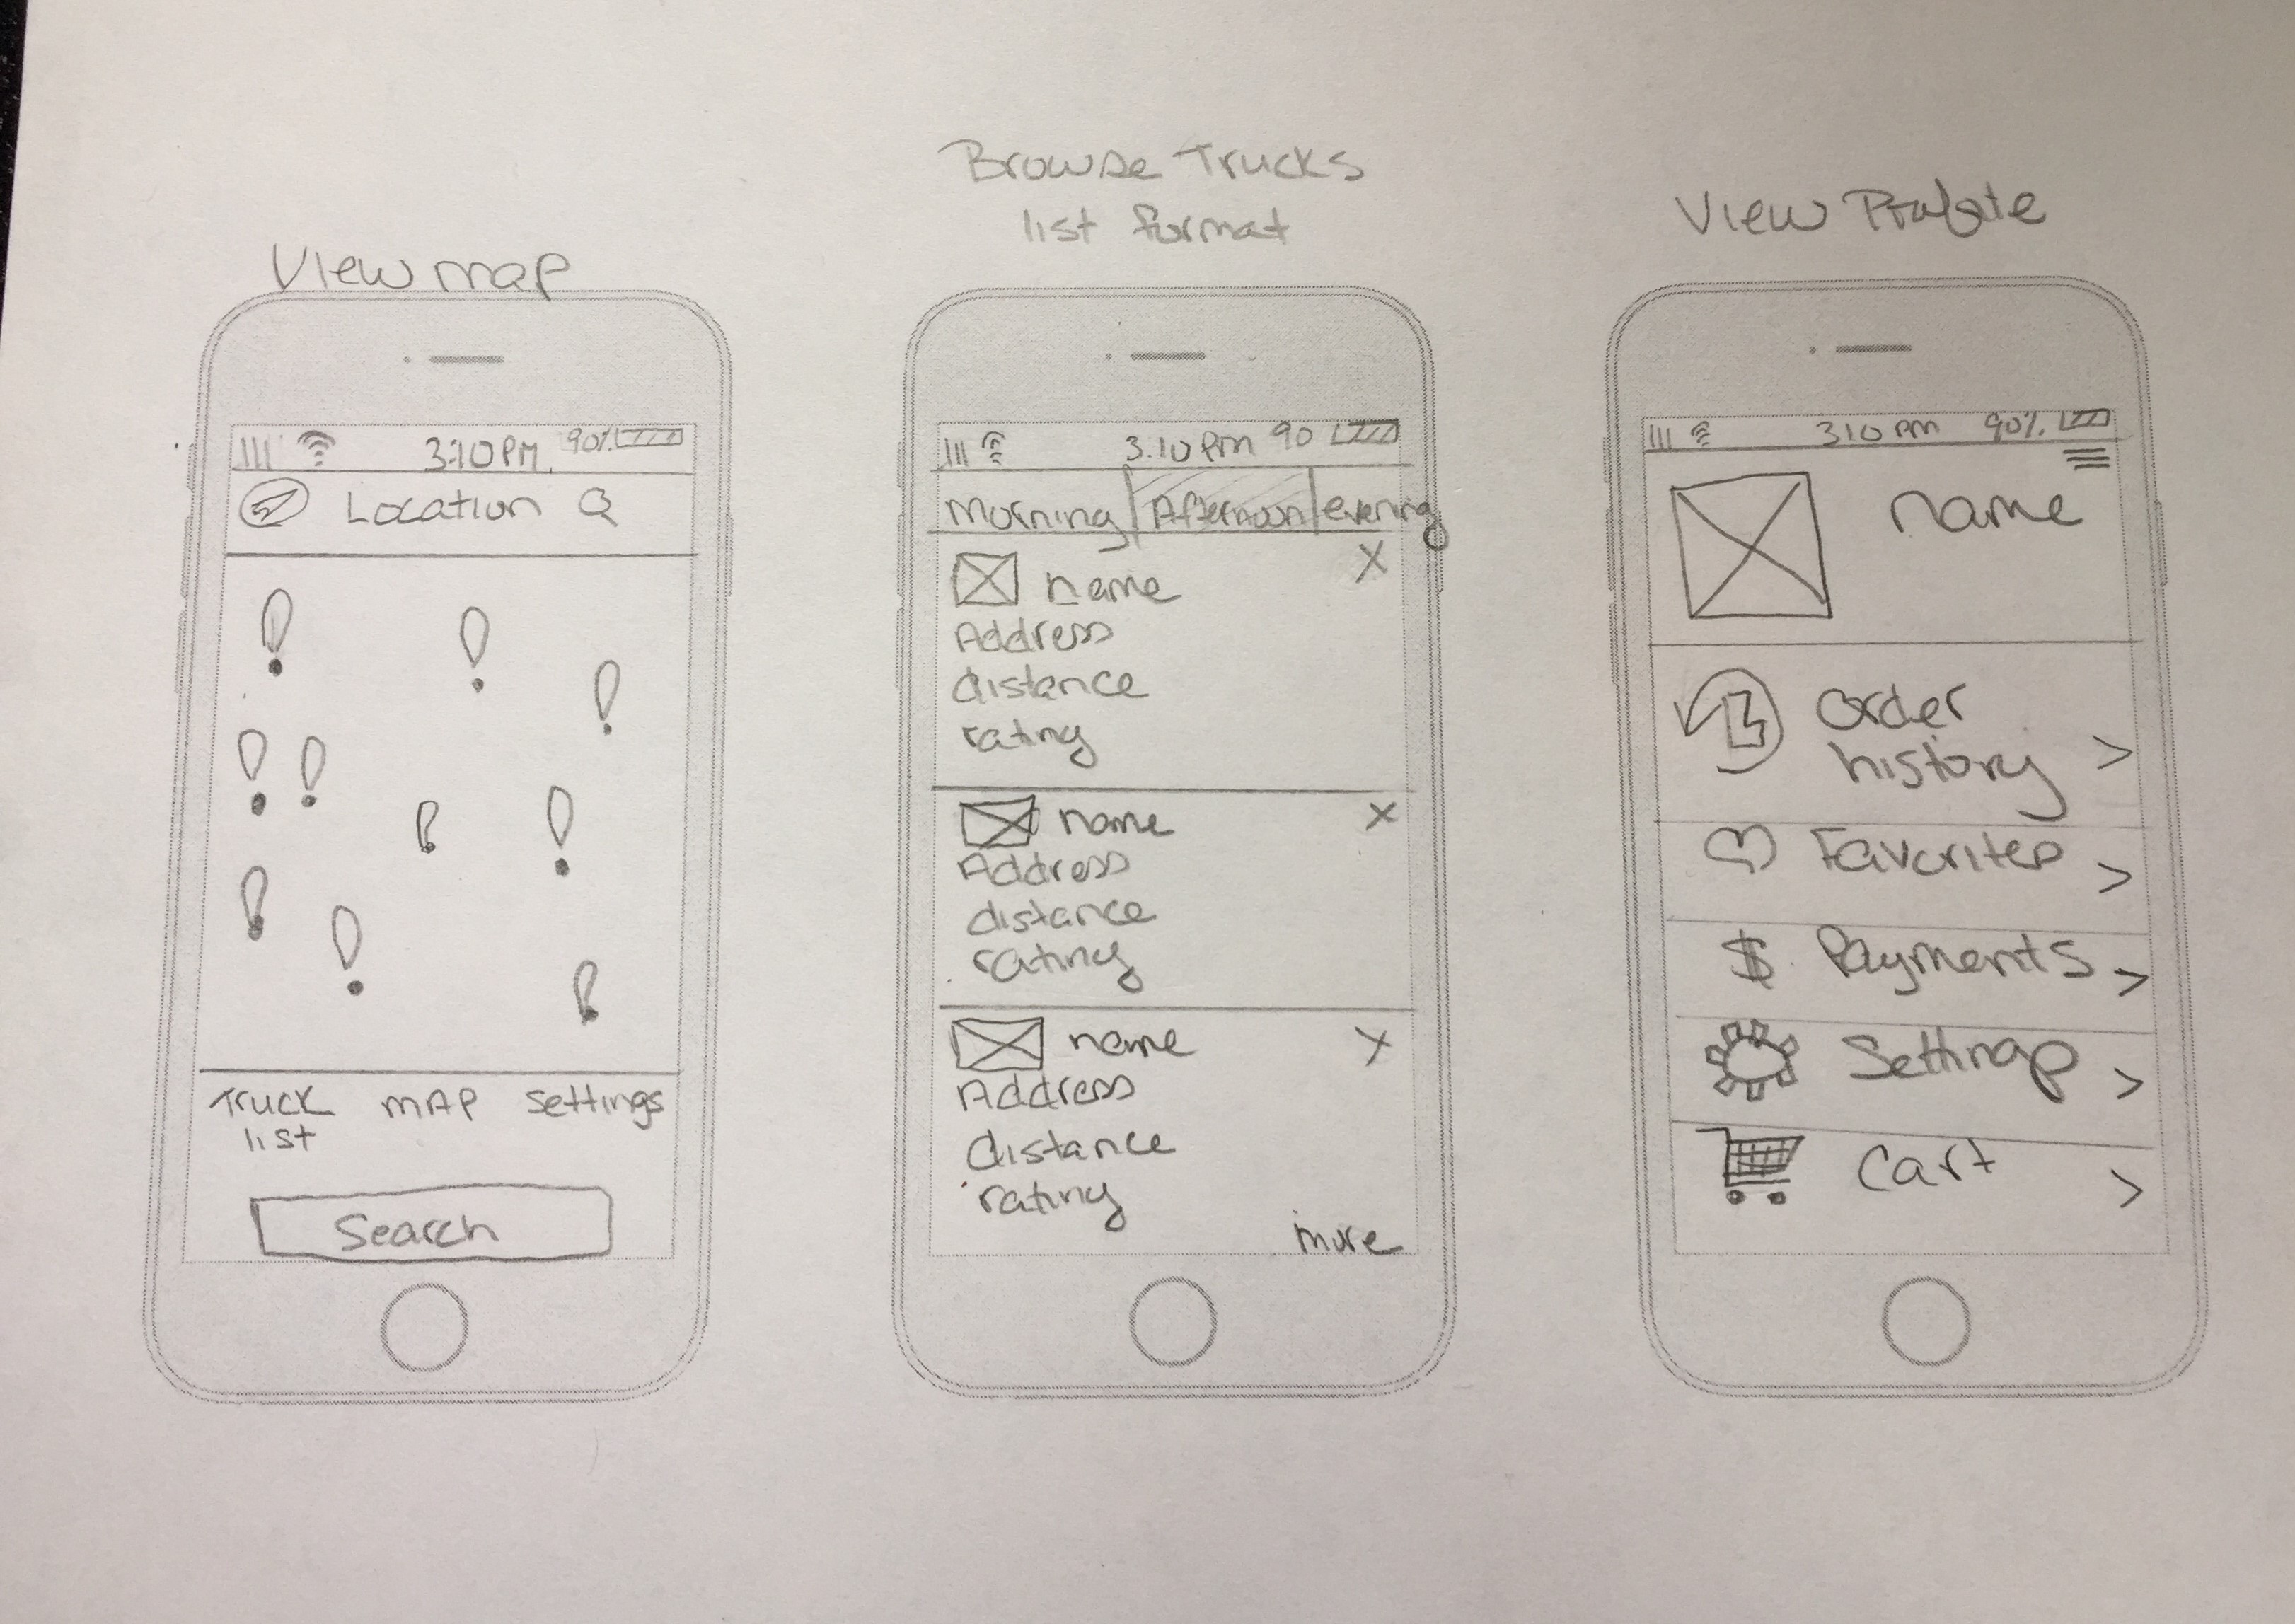 View map
3:10 PM 90%
Location
Truck MAP settings
list
Search
Browse Trucks
list format
3:10 PM 90
Morning Afternoon evening
name X
Address
distance
rating
name X
Address
distance
rating
name X
Address
distance
rating
more
View Profile
310 PM 90%
name
order
history >
Favorites >
$ Payments >
Settings >
Cart >